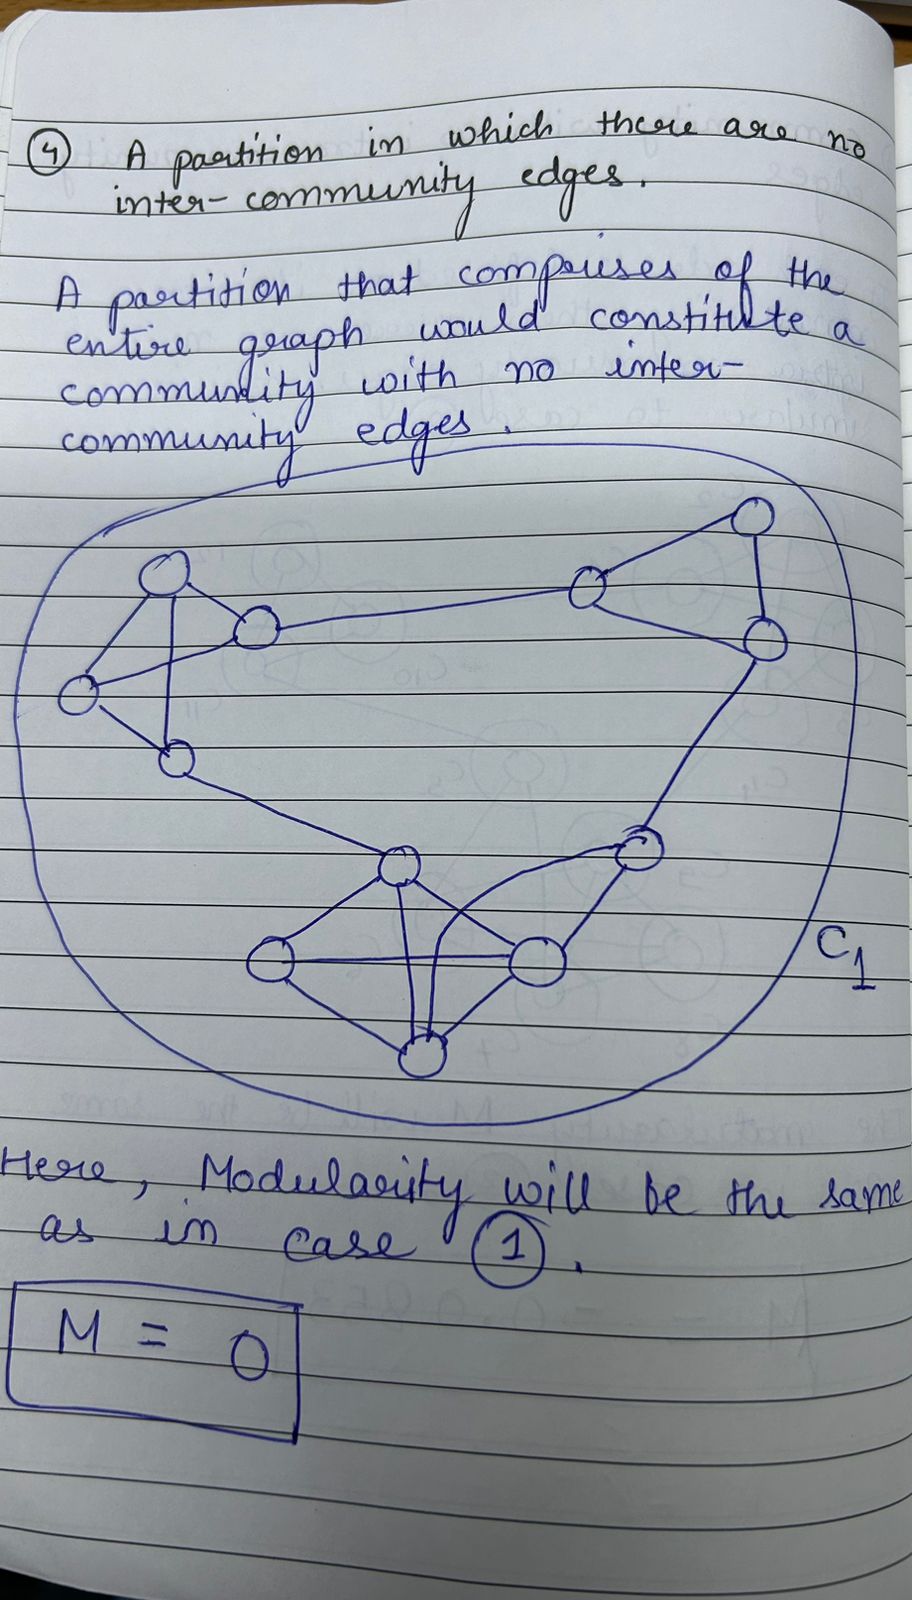 ④ A partition in which there are no
inter-community edges.
A partition that comprises of the
entire graph would constitute a
community with no inter-
community edges.
C1
Here, Modularity will be the same
as in case ①.
M = 0